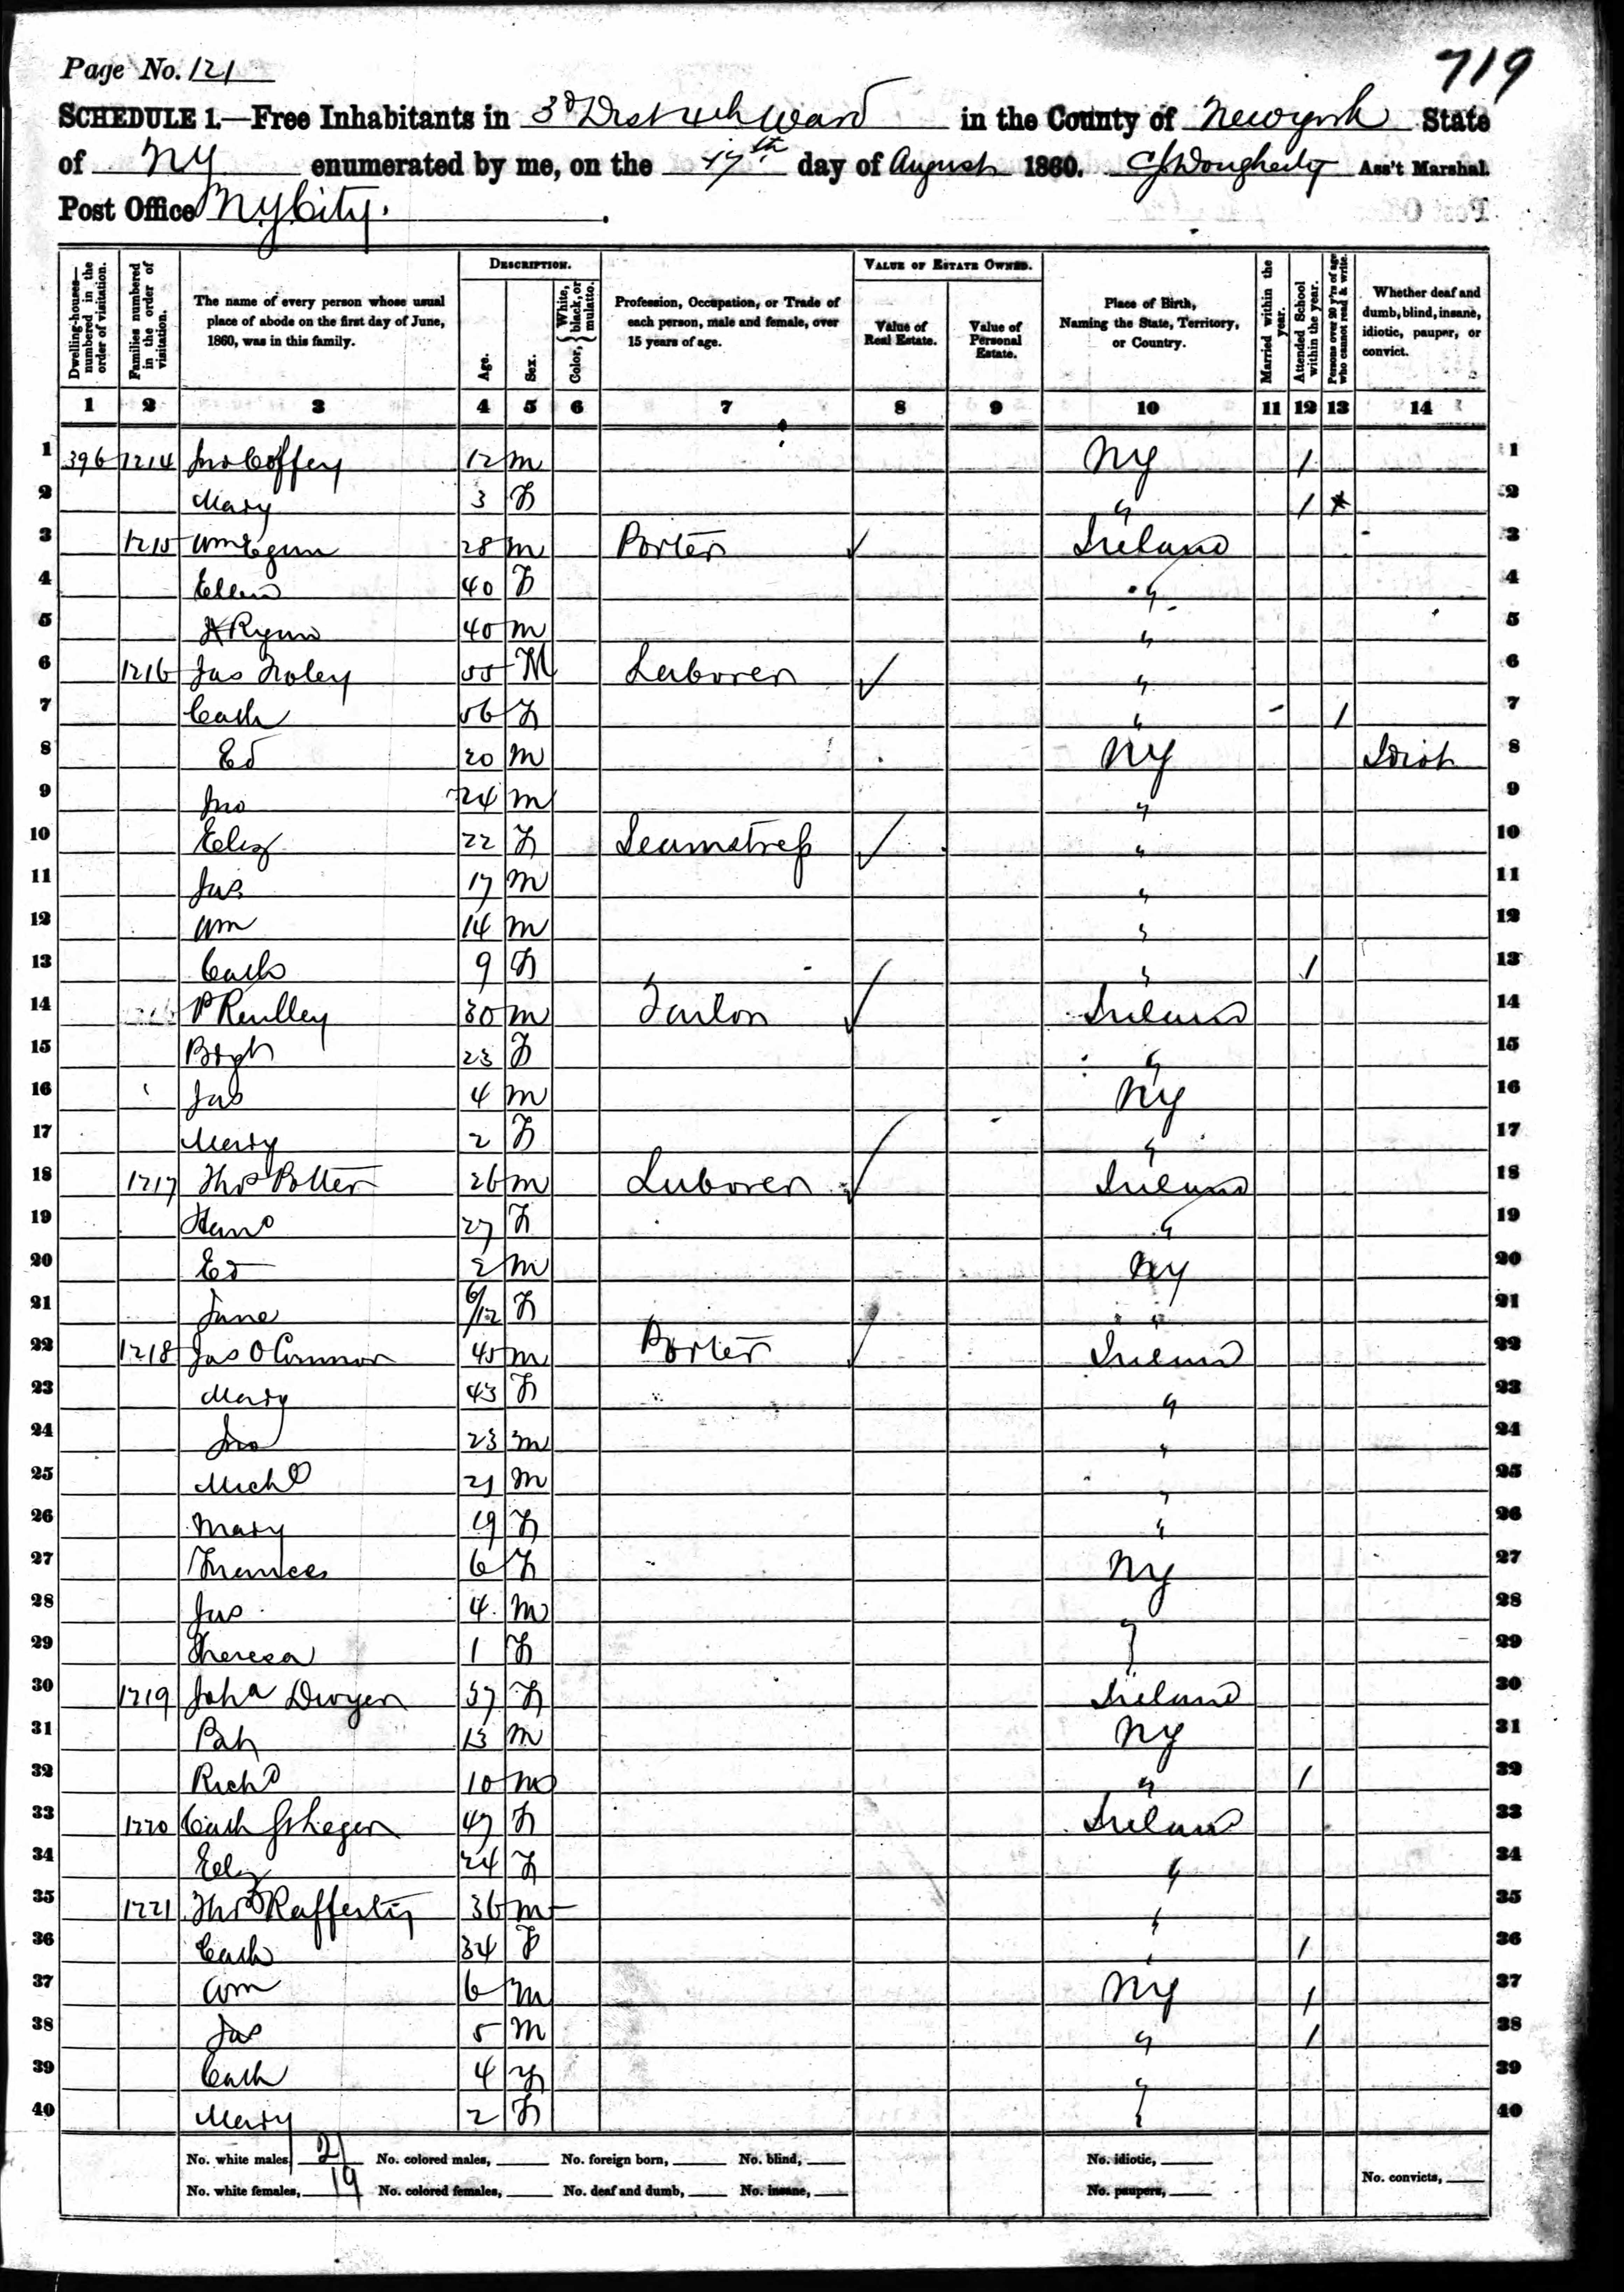 Page No. 121
719
SCHEDULE 1.—Free Inhabitants in 3d Dist 4th Ward in the County of New york State
of NY enumerated by me, on the 17th day of August 1860. Ass't Marshal.
Post Office NY City.
Dwelling-houses—numbered in the order of visitation.
Families numbered in the order of visitation.
The name of every person whose usual place of abode on the first day of June, 1860, was in this family.
DESCRIPTION.
Age.
Sex.
Color, { White, black, or mulatto.
Profession, Occupation, or Trade of each person, male and female, over 15 years of age.
VALUE OF ESTATE OWNED.
Value of Real Estate.
Value of Personal Estate.
Place of Birth, Naming the State, Territory, or Country.
Married within the year.
Attended School within the year.
Persons over 20 y'rs of age who cannot read & write.
Whether deaf and dumb, blind, insane, idiotic, pauper, or convict.
1 2 3 4 5 6 7 8 9 10 11 12 13 14
1 396 1214 Jno Coffey 12 m NY / 1
2 Mary 3 F " / 2
3 1215 Wm Egan 28 m Porter Ireland 3
4 Ellen 40 F " 4
5 Ryan 40 m " 5
6 1216 Jas Foley 55 M Laborer " 6
7 Cath 56 F " / 7
8 Ed 20 m NY Idiot 8
9 Jno 24 m " 9
10 Eliz 22 F Seamstress " 10
11 Jas 17 m " 11
12 Wm 14 m " 12
13 Cath 9 F " / 13
14 P 30 m Ireland 14
15 Bgt 23 F " 15
16 Jas 4 m NY 16
17 Mary 2 F " 17
18 1217 Thos Potter 26 m Laborer Ireland 18
19 27 F " 19
20 Ed 2 m NY 20
21 Jane 6/12 F " 21
22 1218 Jas O Connor 45 m Porter Ireland 22
23 Mary 43 F " 23
24 Jno 23 m " 24
25 Michl 21 m " 25
26 Mary 19 F " 26
27 Frances 6 F NY 27
28 Jas 4 m 28
29 Theresa 1 F " 29
30 1219 Joha Dwyer 37 F Ireland 30
31 Pat 13 m NY 31
32 Richd 10 m " / 32
33 1220 Cath 47 F Ireland 33
34 Eliz 24 F " 34
35 1221 Thos Rafferty 36 m " 35
36 Cath 34 F " / 36
37 Wm 6 m NY / 37
38 Jas 5 m " / 38
39 Cath 4 F " 39
40 Mary 2 F " 40
No. white males, 21 No. colored males, No. foreign born, No. blind, No. idiotic,
No. white females, 19 No. colored females, No. deaf and dumb, No. insane, No. paupers, No. convicts,